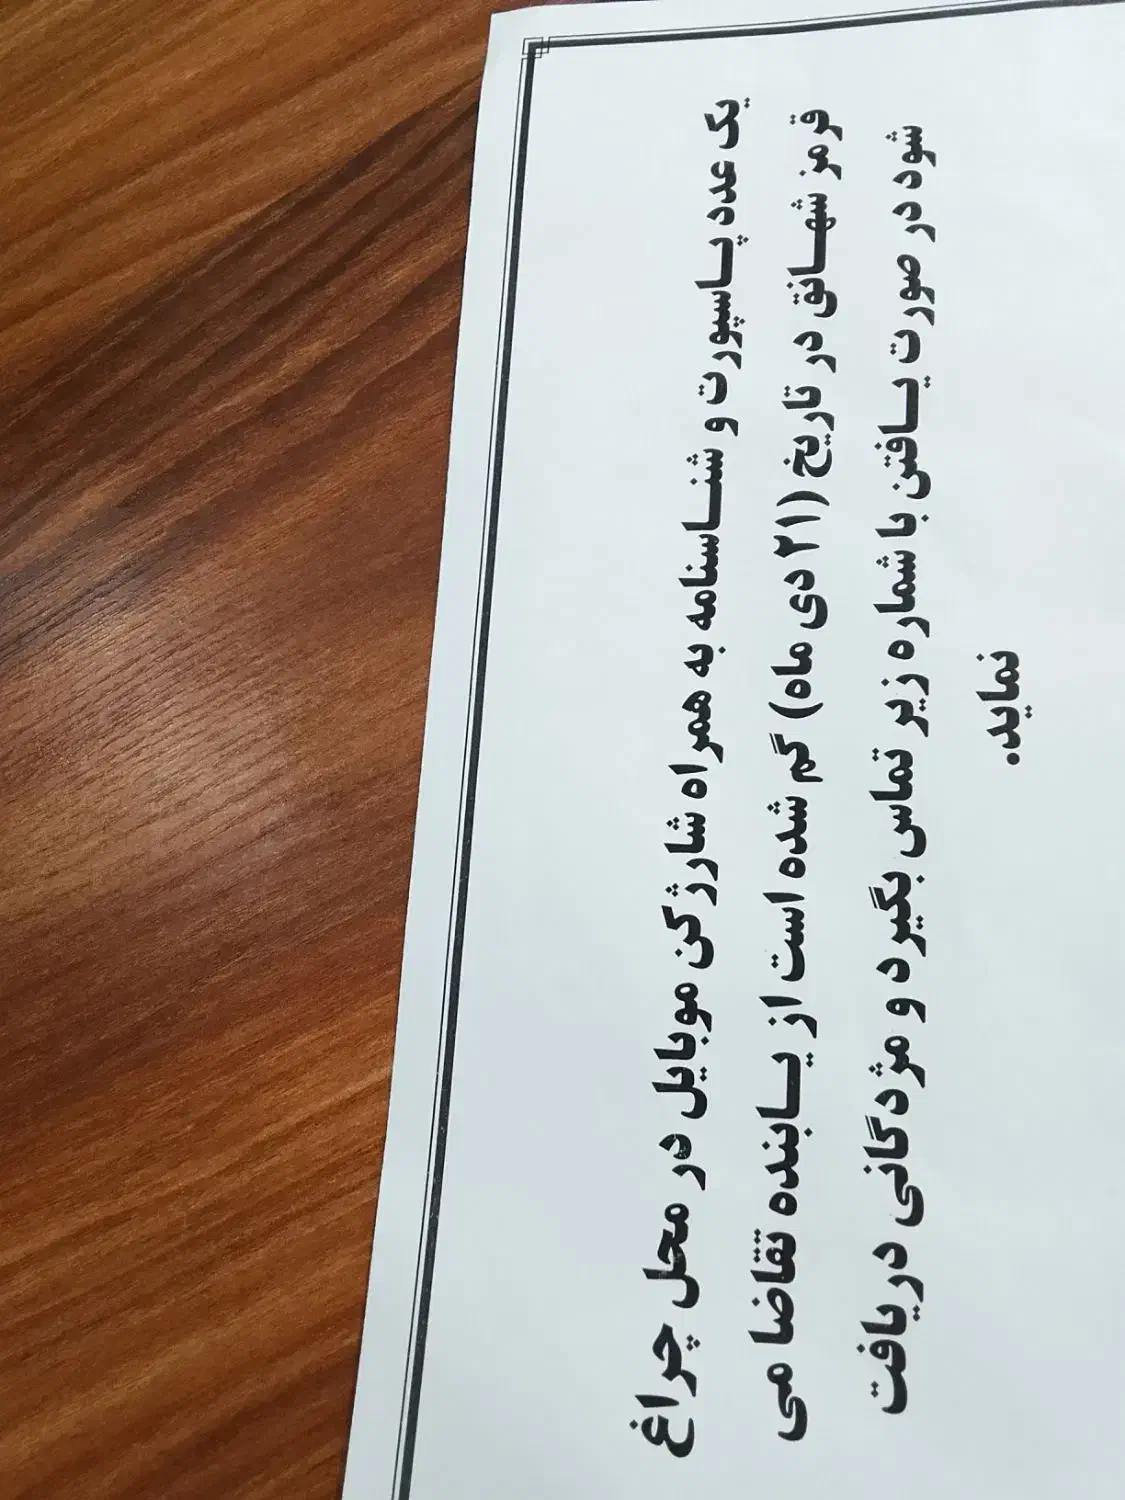 یک عدد پاسپورت و شناسنامه به همراه شارژ کن موبایل در محل چراغ
قرمز شهانق در تاریخ (۲۱ دی ماه) گم شده است از یابنده تقاضا می
شود در صورت یافتن با شماره زیر تماس بگیرد و مژدگانی دریافت
نماید.